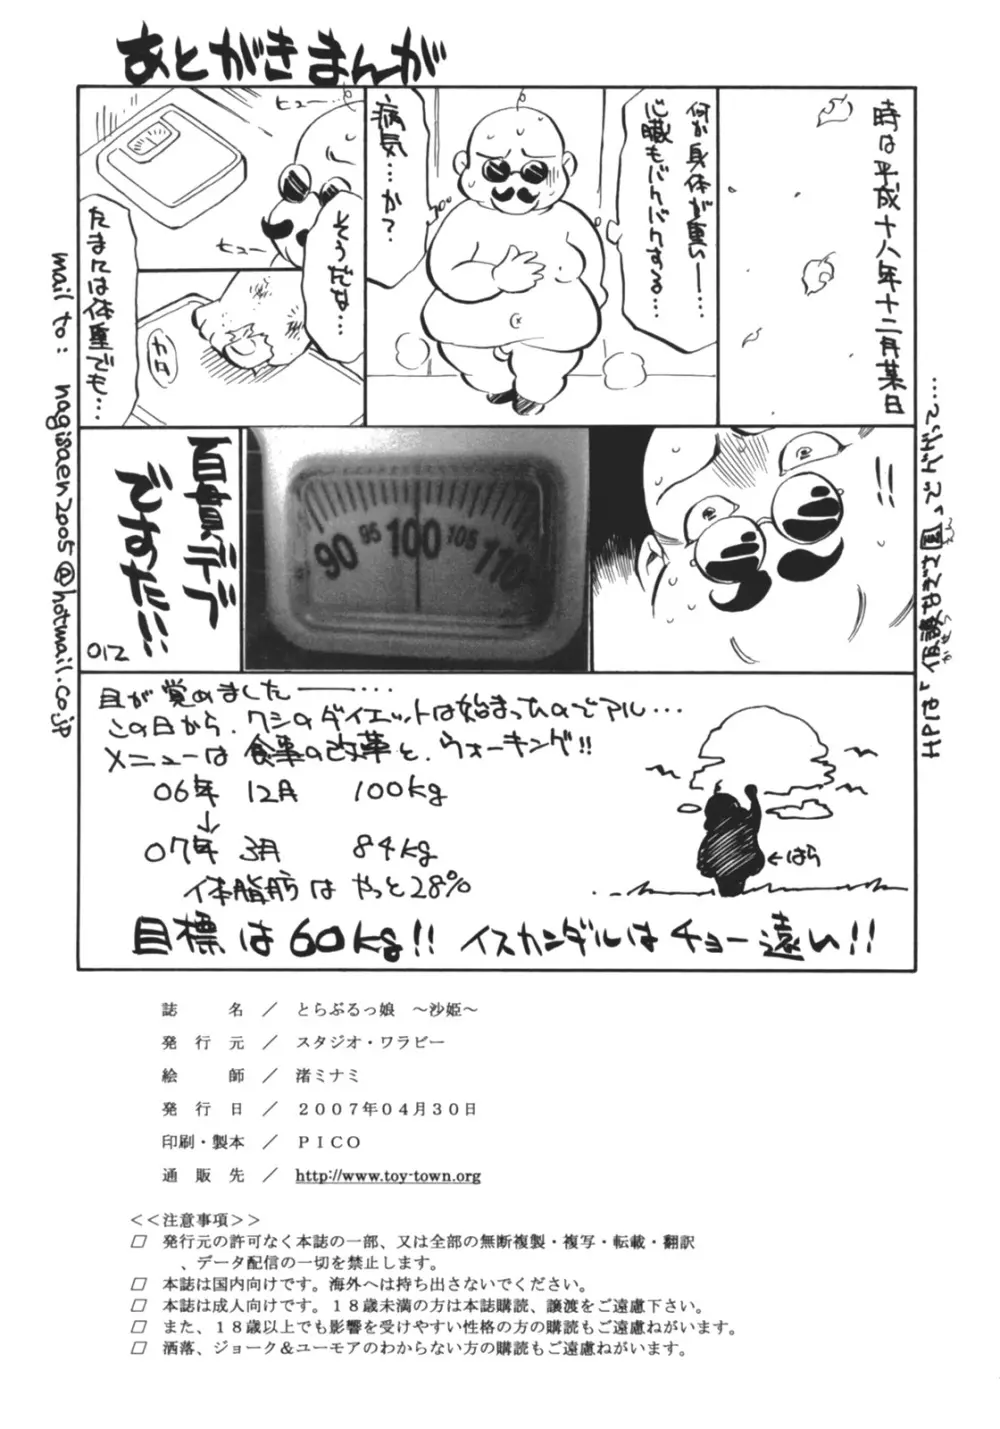 あとがきまんが
時は平成十八年十二月某日
何か身体が重い――…
心臓もバクバクする…
病気…か?
ヒュー…
ヒュー
そうだな…
たまには体重でも…
カタ
!!
90 95 100 105 110
百貫デブ
ですた!!!
012
目が覚めました――…
この日から、ワシのダイエットは始まったのでアル…
メニューは食事の改革と、ウォーキング!!
06年 12月 100kg
↓
07年 3月 84kg
体脂肪は やっと28%
←はら
目標は60kg!! イスカンダルはチョー遠い!!
mail to: nagisaen2005@hotmail.co.jp
誌名／とらぶるっ娘 ～沙姫～
発行元／スタジオ・ワラビー
絵師／渚ミナミ
発行日／２００７年０４月３０日
印刷・製本／ＰＩＣＯ
通販先／http://www.toy-town.org
<<注意事項>>
□ 発行元の許可なく本誌の一部、又は全部の無断複製・複写・転載・翻訳
、データ配信の一切を禁止します。
□ 本誌は国内向けです。海外へは持ち出さないでください。
□ 本誌は成人向けです。１８歳未満の方は本誌購読、譲渡をご遠慮下さい。
□ また、１８歳以上でも影響を受けやすい性格の方の購読もご遠慮ねがいます。
□ 洒落、ジョーク＆ユーモアのわからない方の購読もご遠慮ねがいます。